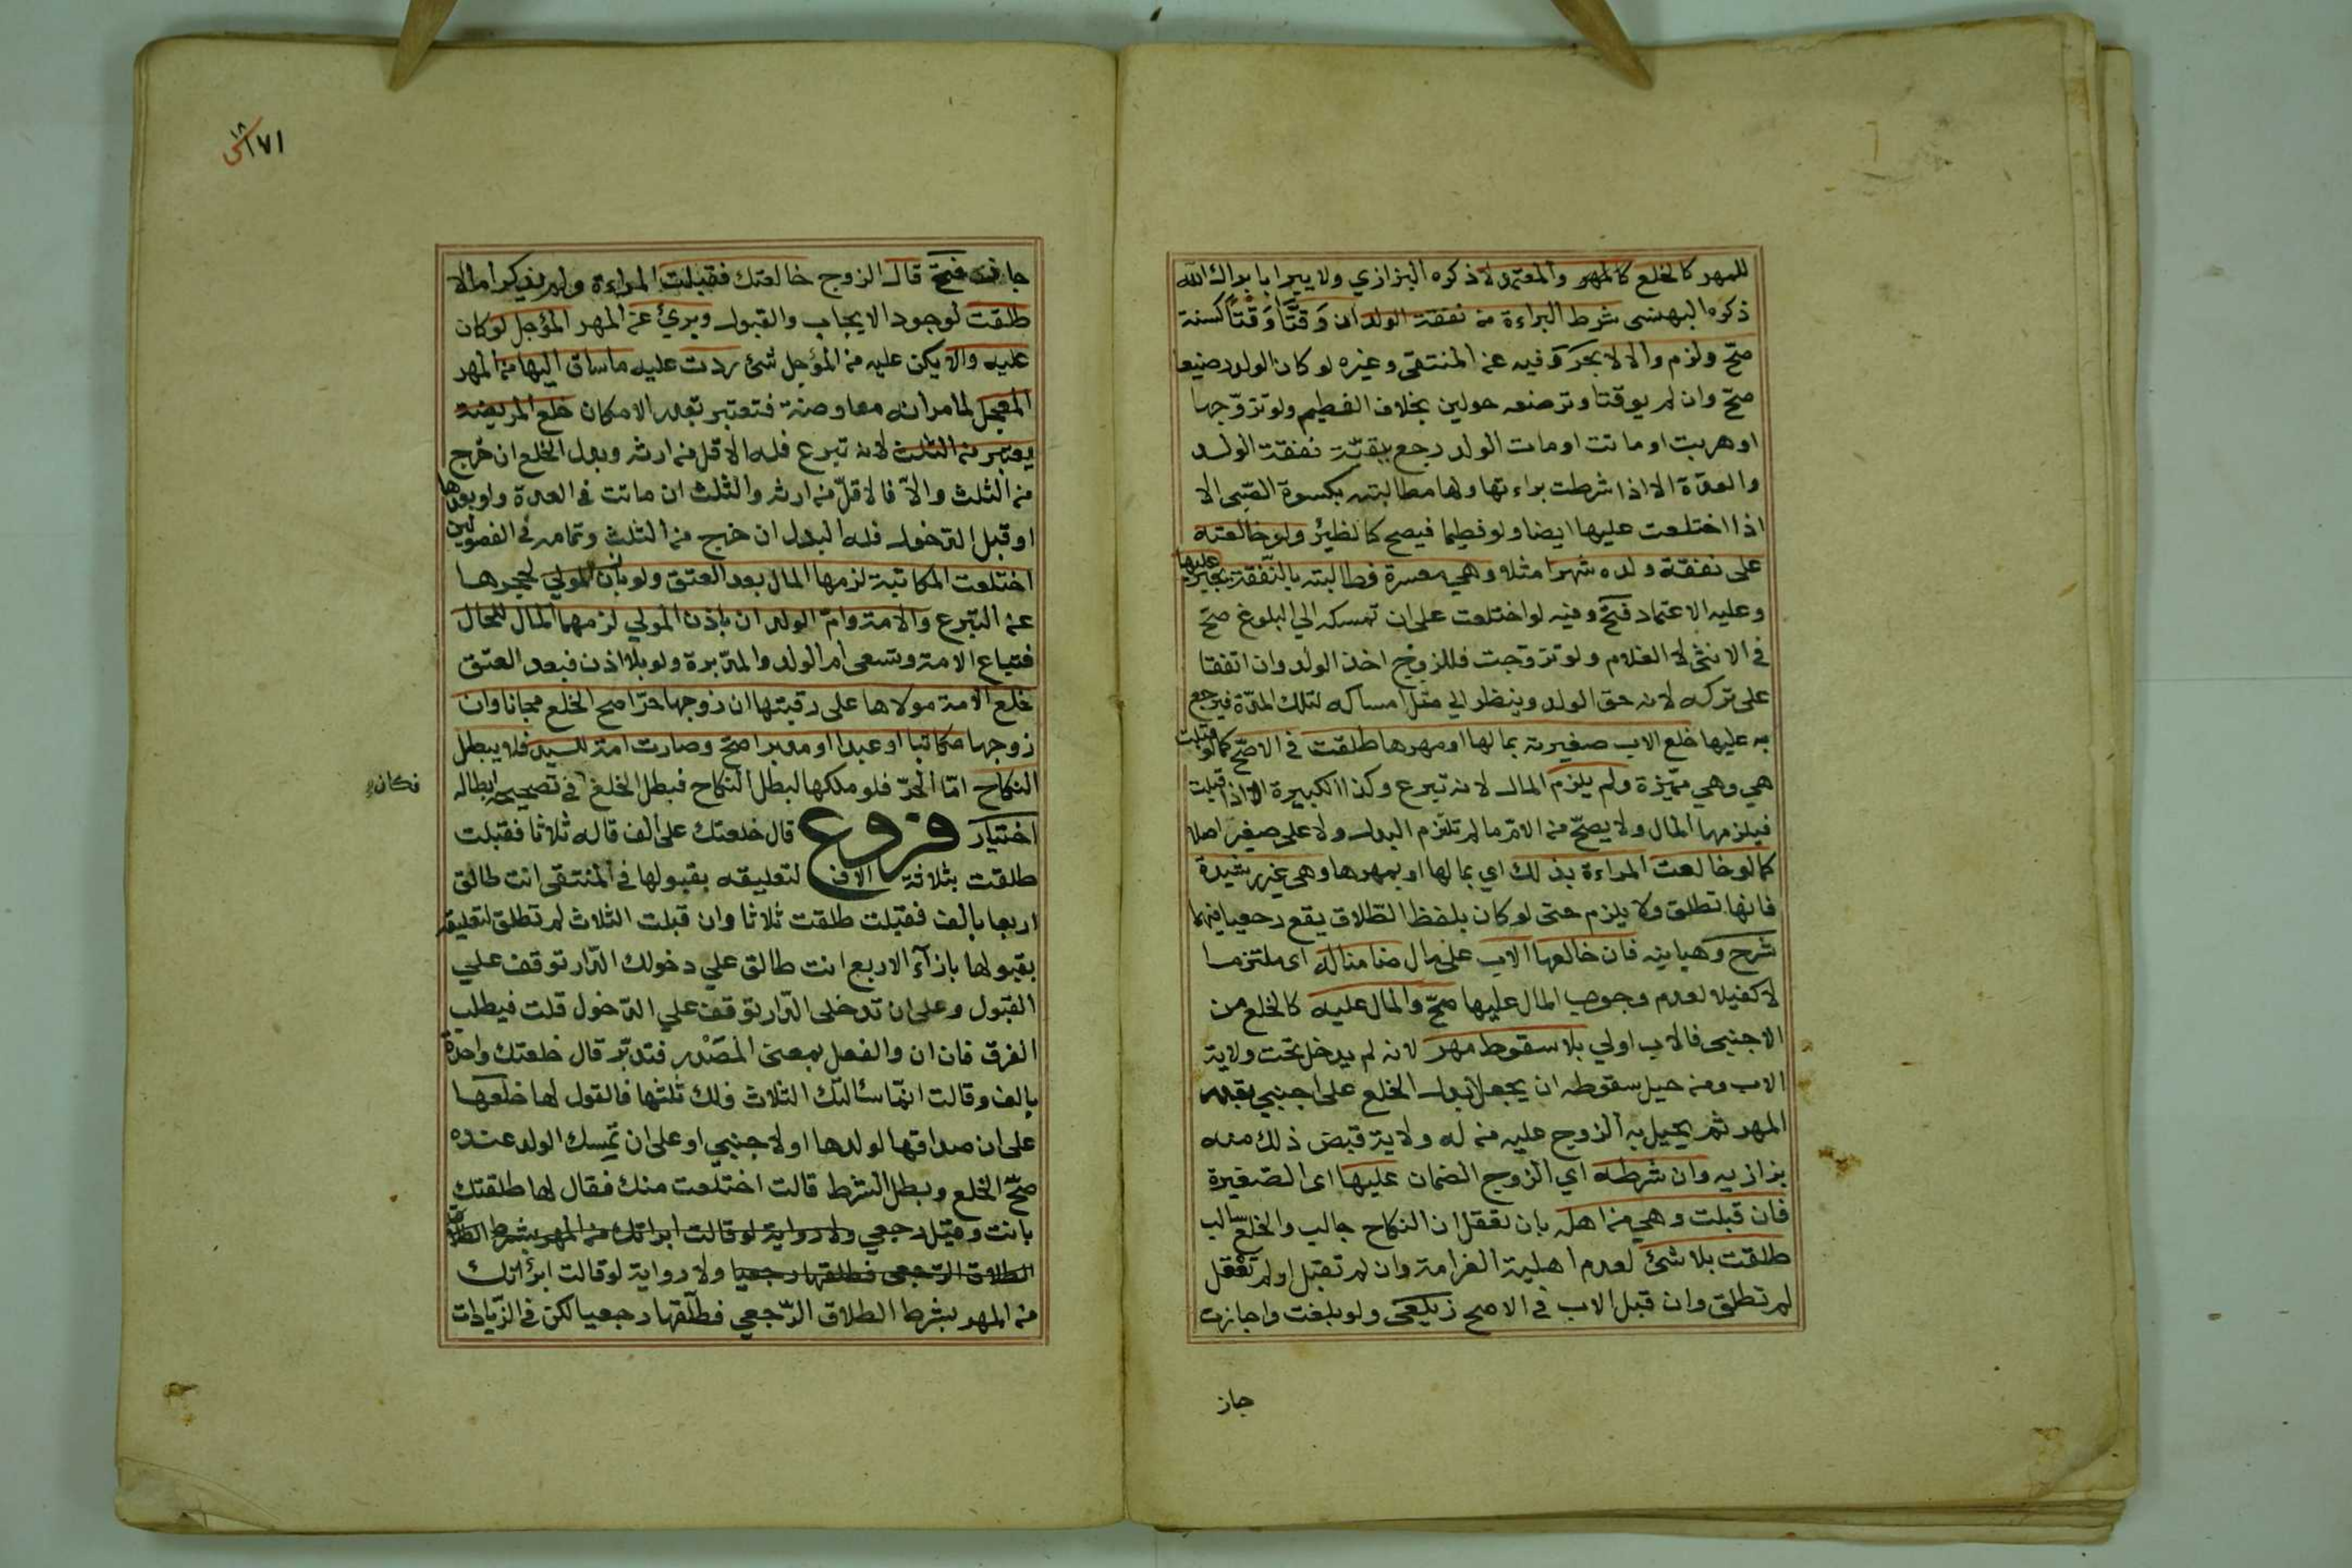 للمهر كالخلع كالمهر والمعتمد لا ذكره البزازي ولا يبرا بابراك الله
ذكره البهنسى شرط البراءة من نفقة الولد ان وَقَّتَا وَقْتًا كسنة
صحّ ولزم والا لا بحر وفيه عن المنتقى وغيره لو كان الولد رضيعا
صحّ وان لم يوقتا وترضعه حولين بخلاف الفطيم ولو تزوّجها
او هربت او ماتت او مات الولد رجع ببقيّة نفقة الولد
والعدّة الا اذا شرطت براءتها ولها مطالبته بكسوة الصّبى الا
اذا اختلعت عليها ايضا ولو فطيما فيصح كالظئر ولو خالعته
على نفقة ولده شهرا مثلا وهي معسرة فطالبته بالنّفقة يجبر عليها
وعليه الاعتماد فتح وفيه لو اختلعت على ان تمسكه الي البلوغ صحّ
في الانثى لا الغلام ولو تزوّجت فللزوج اخذ الولد وان اتفقا
على تركه لانه حق الولد وينظر الي مثل امساكه لتلك المدّة فيرجع
به عليها خلع الاب صغيرته بمالها او مهرها طلقت في الاصحّ كما لو قبلت
هي وهي مميّزة ولم يلزم المال لانه تبرع وكذا الكبيرة الا اذا قبلت
فيلزمها المال ولا يصحّ من الامّ ما لم تلتزم البدل ولا على صغير اصلا
كما لو خالعت المراءة بذلك اي بمالها او بمهرها وهى غير رشيدة
فانها تطلق ولا يلزم حتى لو كان بلفظ الطّلاق يقع رجعيا فيهما
شرح وهبانيه فان خالعها الاب على مال ضامنا له اى ملتزما
لا كفيلا لعدم وجوب المال عليها صحّ والمال عليه كالخلع من
الاجنبى فالاب اولي بلا سقوط مهر لانه لم يدخل تحت ولاية
الاب ومن حيل سقوطه ان يجعل بدل الخلع على اجنبي بقدر
المهر ثم يحيل به الزوج عليه من له ولاية قبض ذلك منه
بزازيه وان شرطه اي الزوج الضمان عليها اى الصّغيرة
فان قبلت وهي من اهله بان تعقل ان النكاح جالب والخلع سالب
طلقت بلا شئ لعدم اهلية الغرامة وان لم تقبل او لم تعقل
لم تطلق وان قبل الاب في الاصح زيلعى ولو بلغت واجازت
جاز
١٧١
جاز فتح قال الزوج خالعتك فقبلت المراءة ولم يذكرا مالا
طلقت لوجود الايجاب والقبول وبرئ عن المهر المؤجل لو كان
عليه والا يكن عليه من المؤجل شئ ردت عليه ما ساق اليها من المهر
المعجل لما مر انه معاوضة فتعتبر بقدر الامكان خلع المريضة
يعتبر من الثلث لانه تبرع فله الاقل من ارثه وبدل الخلع ان خرج
من الثلث والاّ فالاقلّ من ارثه والثلث ان ماتت في العدة ولو بعدها
او قبل الدّخول فله البدل ان خرج من الثلث وتمامه في الفصولين
اختلعت المكاتبة لزمها المال بعد العتق ولو باذن المولي لحجرها
عن التبرع والامة وامّ الولد ان باذن المولي لزمهما المال للحال
فتباع الامة وتسعى ام الولد والمدّبرة ولو بلا اذن فبعد العتق
خلع الامة مولاها على رقبتها ان زوجها حرّا صح الخلع مجانا وان
زوجها مكاتبا او عبدا او مدبرا صحّ وصارت امة للسيد فلا يبطل
النكاح امّا الحرّ فلو ملكها لبطل النكاح فبطل الخلع في تصحيحه ابطاله
فكان
اختيار فروع قال خلعتك على الف قاله ثلاثا فقبلت
طلقت بثلاثة الاف لتعليقه بقبولها في المنتقى انت طالق
اربعا بالف فقبلت طلقت ثلاثا وان قبلت الثلاث لم تطلق لتعليقه
بقبولها بازآء الاربع انت طالق علي دخولك الدّار توقف علي
القبول وعلى ان تدخلى الدّار توقف علي الدّخول قلت فيطلب
الفرق فان ان والفعل بمعنى المَصْدر فتدبّر قال خلعتك واحدة
بالف وقالت انّما سئالتك الثلاث فلك ثلثها فالقول لها خلعها
على ان صداقها لولدها او لاجنبي او على ان يمسك الولد عنده
صحّ الخلع وبطل الشرط قالت اختلعت منك فقال لها طلقتك
بانت وقيل رجعي ولا رواية لو قالت ابراتك من المهر بشرط الطلاق
الطلاق الرّجعى فطلقها رجعيا ولا رواية لو قالت ابرٔاتك
من المهر بشرط الطلاق الرّجعي فطلّقها رجعيا لكن في الزّيادات